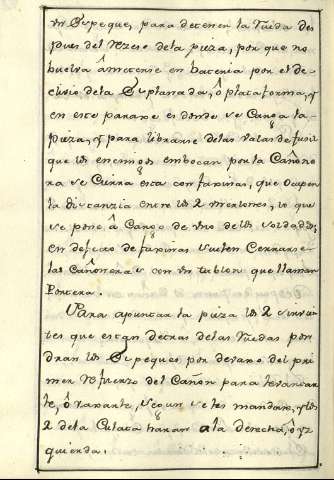 Un Espeque, para detener la rueda des
pues del Rezeso de la pieza, por que no
buelva â meterse en bateria por el de
clivio de la Esplanada, ô plataforma, y
en este paraxe es donde se Carga la
pieza, y para librarse de las valas de fusil
que los enemigos embocan por la Cañone
ra se Cierra esta con faxinas, que Ocupen
la distanzia entre los 2 merlones, lo que
se pone â Cargo de uno de los soldados;
en defecto de faxinas suelen Cerrarse
las Cañoneras con un tablon que llaman
Portera.
Para apuntar la pieza los 2 sirvien
tes que estan detras de las ruedas pon
dran los Espeques por devaxo del pri
mer refuerzo del Cañon para levantar
le, ô vaxarle, segun se les mandare, y los
2 de la Culata haran a la derecha, ô yz
quierda.